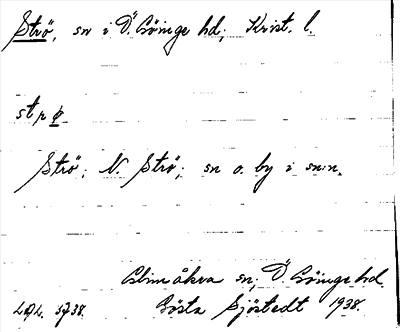 Strö, sn i Ö. Göinge hd; Krist. l.
st r ø
Strö; N. Strö; sn o. by i sn:n.
Glimåkra sn, Ö. Göinge hd.
Gösta Sjöstedt 1938.